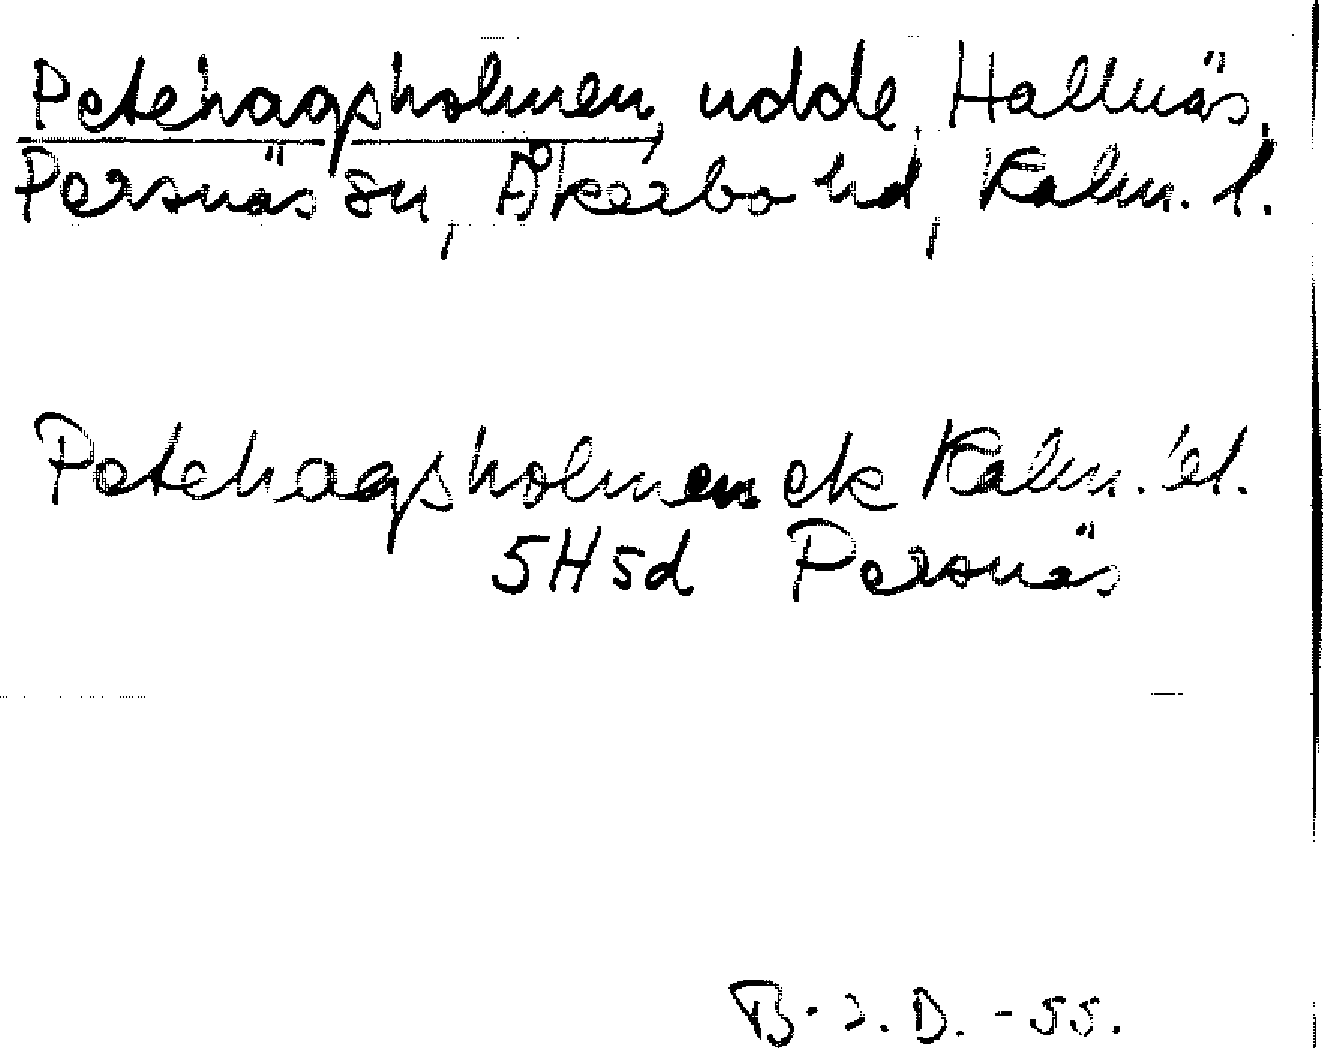 Petehagsholmen, udde, Hallnäs,
Persnäs sn, Åkerbo hd, Kalm. l.
Petehagsholmen ek Kalm. l.
5H5d Persnäs
B. J. D. -55.